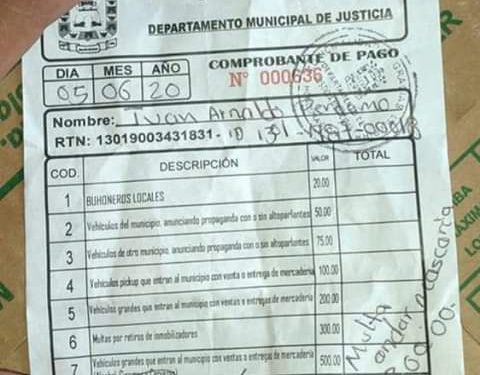 DEPARTAMENTO MUNICIPAL DE JUSTICIA
COMPROBANTE DE PAGO
DIA MES AÑO
05 06 20
N° 000636
Nombre: Ivan Arnaldo Perdomo
RTN: 13019003431831- ID 1301-
COD. DESCRIPCIÓN VALOR TOTAL
1 BUHONEROS LOCALES 20.00
2 Vehículos del municipio, anunciando propaganda con o sin altoparlantes 50.00
3 Vehículos de otro municipio, anunciando propaganda con o sin altoparlantes 75.00
4 Vehículos pickup que entran al municipio con venta o entrega de mercadería 100.00
5 Vehículos grandes que entran al municipio con ventas o entregas de mercadería 200.00
6 Multas por retiros de inmobilizadores 300.00
7 Vehículos grandes que entran al municipio con ventas o entregas de mercadería 500.00
Multa
andar mascarta